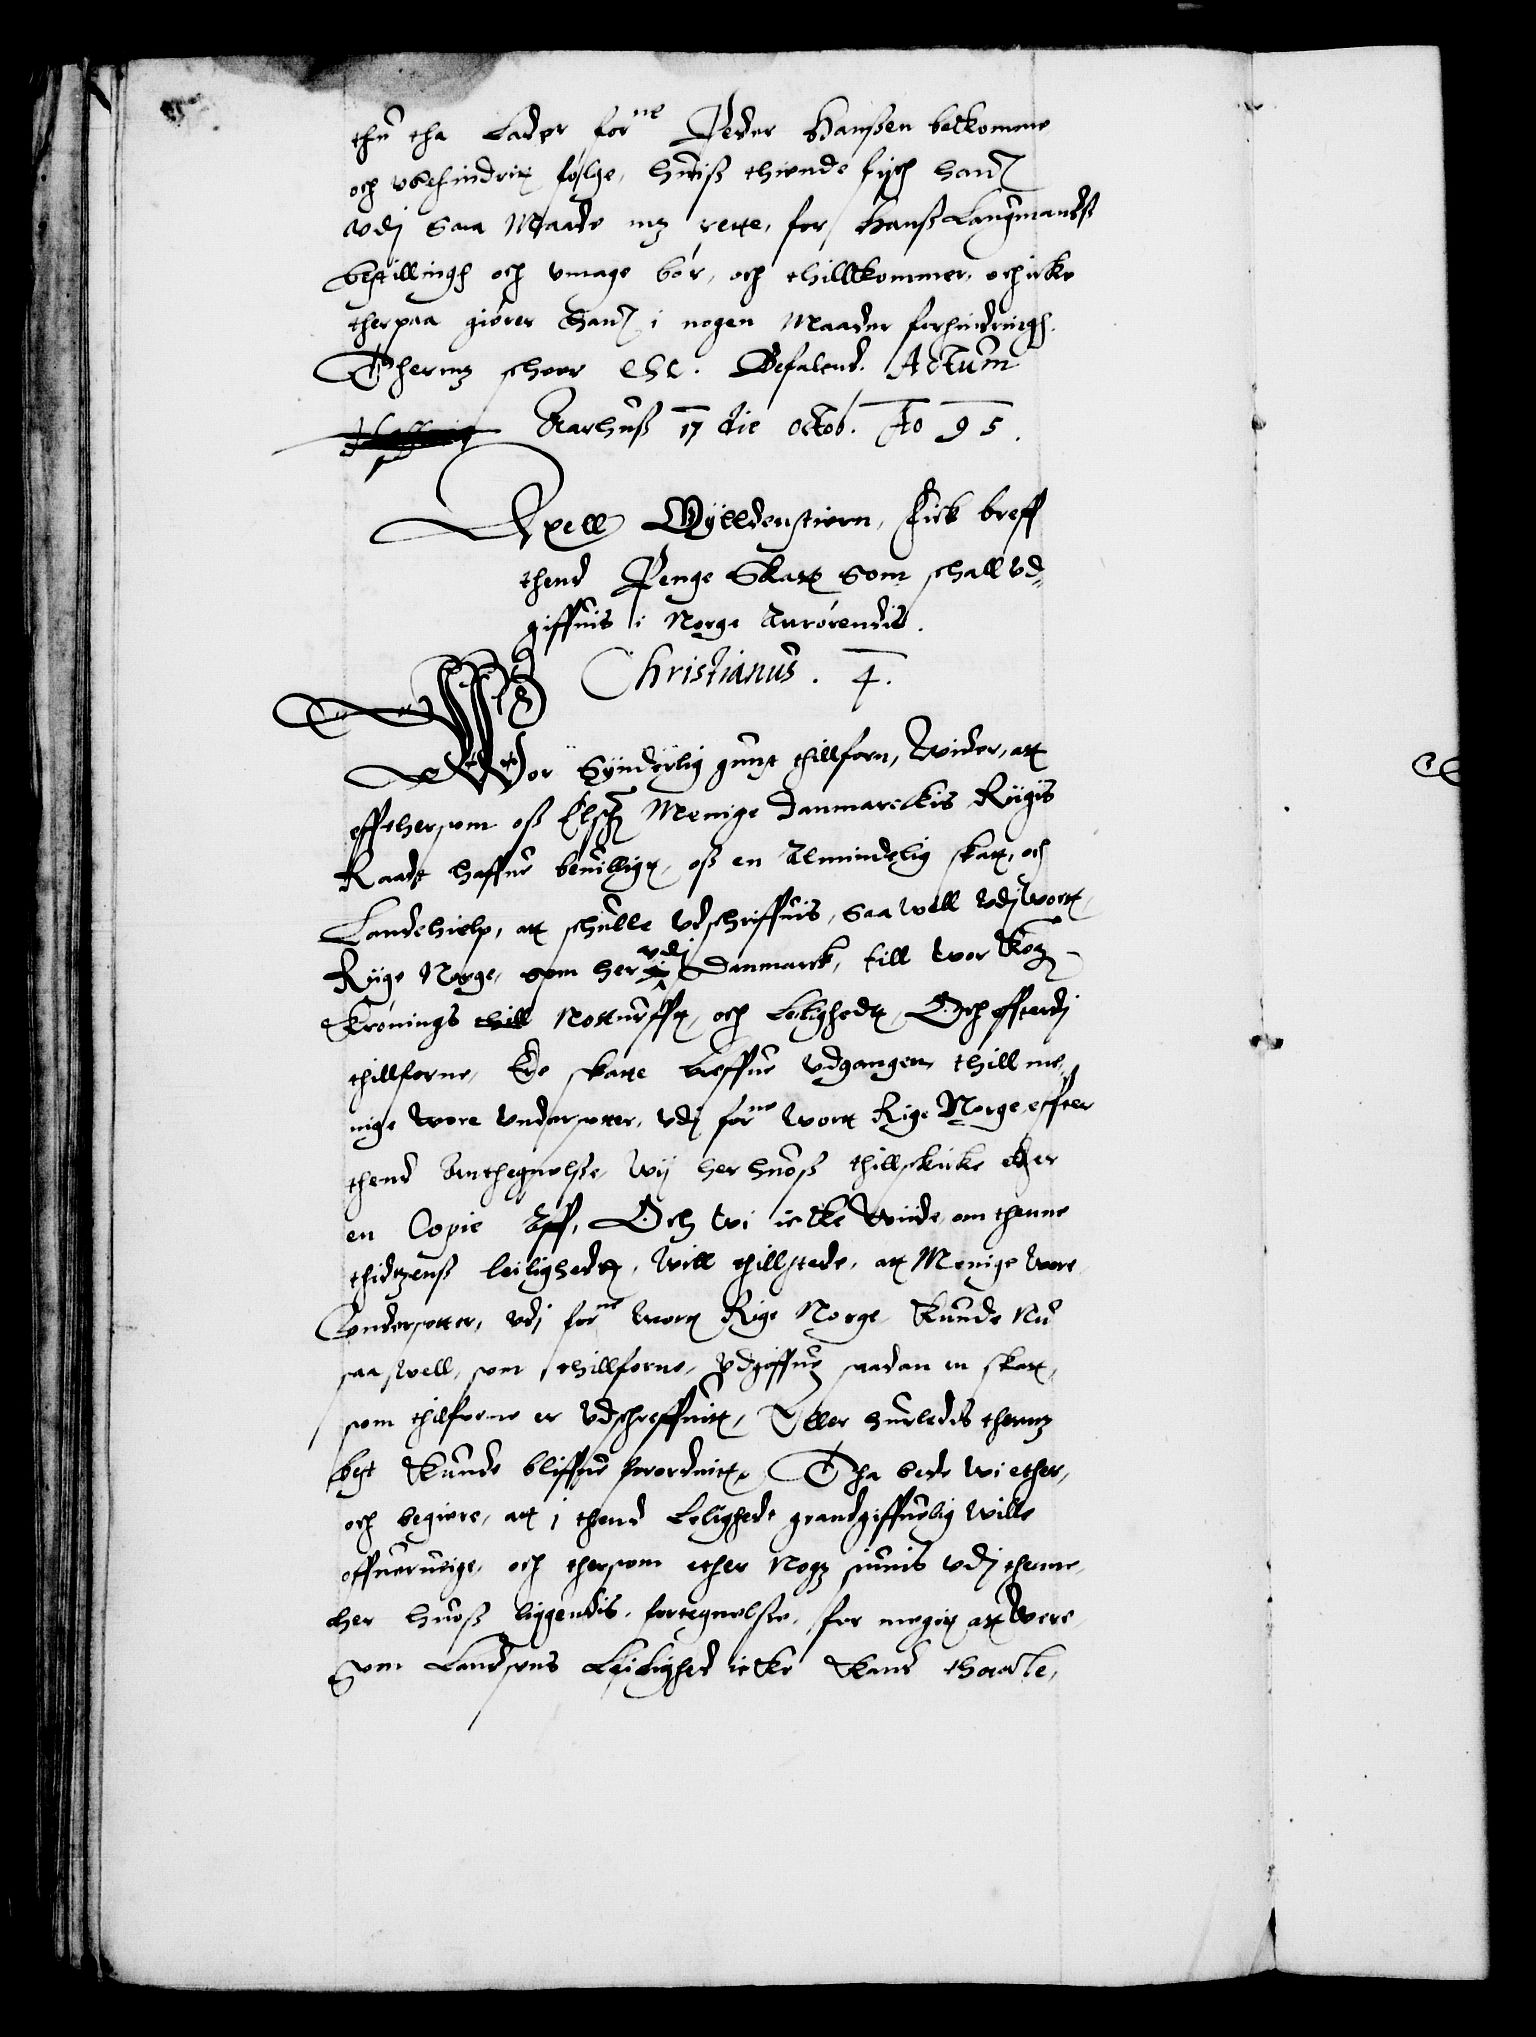 thu tha Lader forne Peder Hanßen bekomme
och vbehindrit følge, huiß thiende fisch hand
vdj saa Maade mz rette, for Hanß Laugmandß
bestilling och vmage bør, och thillkommer, och icke
therpaa giører hand i nogen Maader forhindringh.
Thermz scheer etc. Befalend. Actum
Aarhuß 17 die octob. Ao 95.
Axell Gylldenstiern, Fick breff
thend Penge Skatt som schall vd-
giffuis i Norge Anrørendis.
Christianus. 4.
Wor Synderlig gunst thillforn, Wider, att
effthersom oß Elsch Menige Danmarckis Riigis
Raadt haffue beuilligt, oß en Almindelig skatt, och
Landehielp, att schulle vdschriffuis, saa well vdj wort
Riige Norge, som her vdj Danmarck, till wor Kog
Krønings thill Nottürfft, och Leilighedt, Och efftterdj
thillforne, Ere skatte breffue vdgangen thill me-
nige wore vndersotter, vdj forne wort Rige Norge, effter
thend Anthegnelße wij her huoß thillskicke ether
en Copie Aff, Och wi icke wiide, om thenne
thidtzenß leilighedt, will thillstede, att Menige wore
vndersotter, vdj forne wort Rige Norge kunde Nu
saa well, som thillforne, vdgiffue saadan en skatt,
som thilforne er vdschreffuitt, Eller huorledis thermz
best kunde bliffue forordnitt, Tha bede wi ether,
och begiere, att i thend Leilighedt grandgiffuelig wille
offuerueige, och thersom ether Nogz siunis vdj thenne
her huoß liggendis fortegnelße, for megit att were
som Landsens Leilighed icke kand thaale,